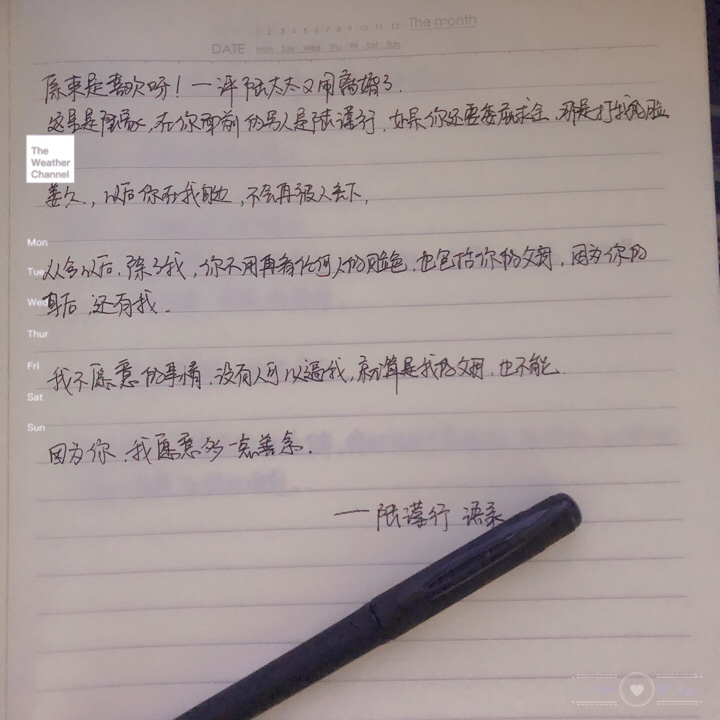 1 2 3 4 5 6 7 8 9 10 11 12 The month
DATE Mon Tue Wed Thu Fri Sat Sun
原来是喜欢呀！一评陆太太又闹离婚了.
这里是陆家，在你面前的男人是陆谨行，如果你还要委屈求全，那是打我的脸
The
Weather
Channel
姜久，以后你在我身边，不会再被人丢下，
Mon
从今以后，除了我，你不用再看任何人的脸色，也包括你的父母，因为你的
Tue
身后，还有我。
Wed
Thur
Fri
我不愿意的事情，没有人可以逼我，就算是我的父母，也不能.
Sat
Sun
因为你，我愿意多一点善念.
——陆谨行 语录